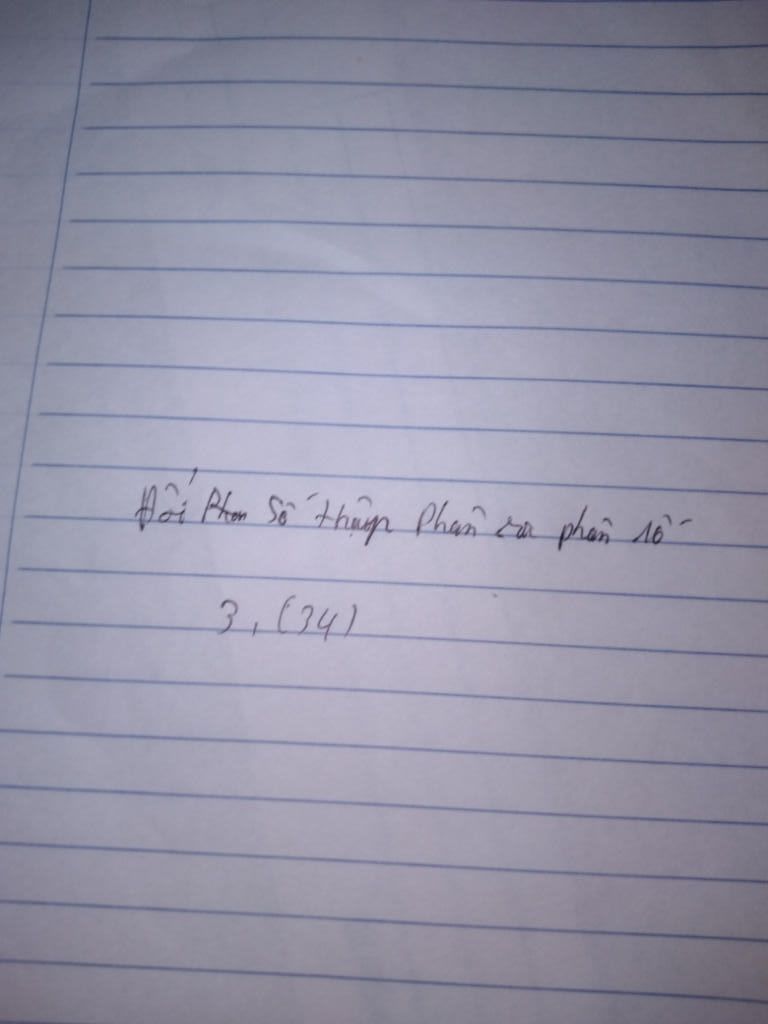 Đổi Phân Số thập Phân ra phân số
3,(34)